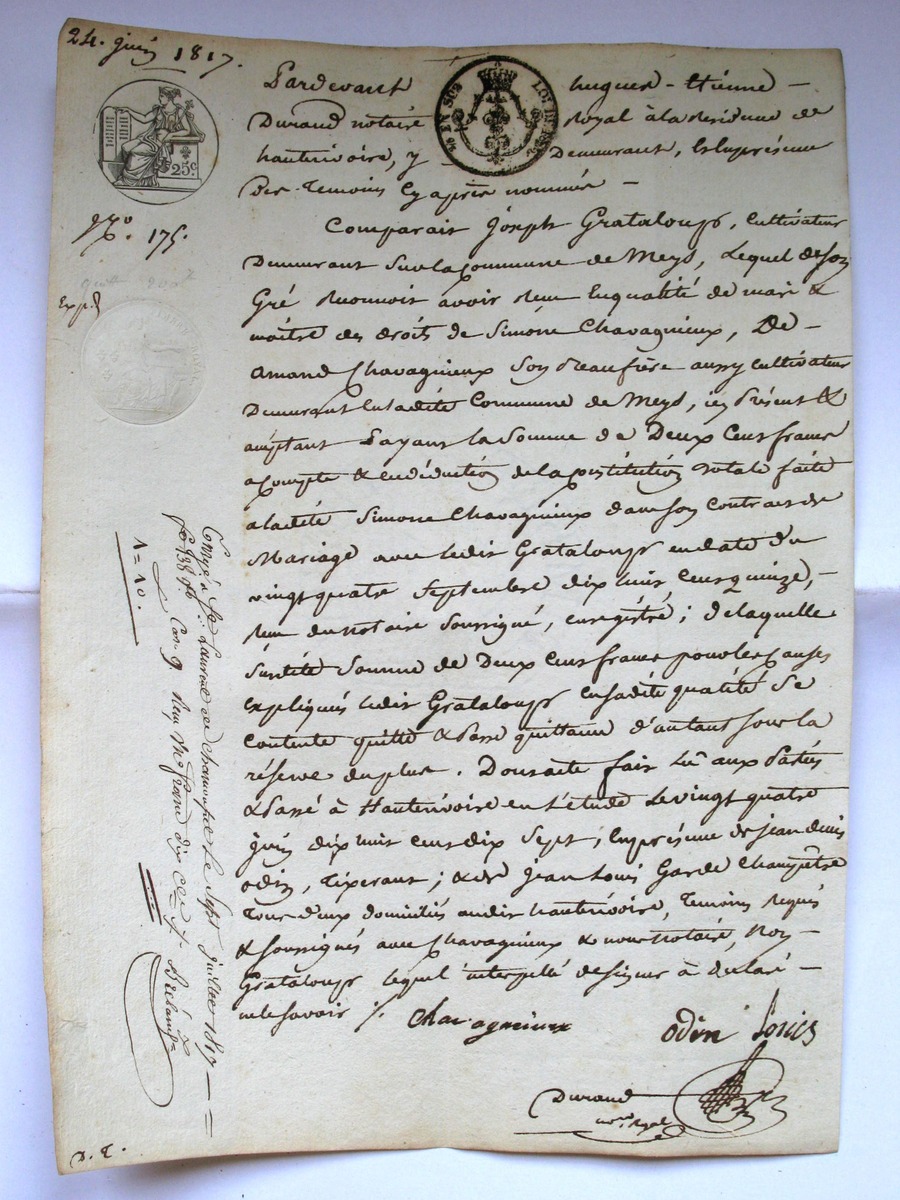 24. juin 1817.
25c
N.o 175.
Exp.é
Pardevant hugues-Etienne -
Durand notaire Royal à la Residence de
hauterivoire, y Demeurant, Et En présence
Des Temoins Cy après nommés -
Comparait Joseph Grataloup, Cultivateur
Demeurant sur la Commune de Meys, Lequel de son
Gré Reconnoit avoir Reçu En qualité de mari &
maitre des droits de Simone Chavagnieux, De -
Amand Chavagnieux Son Beaufrère aussy Cultivateur
Demeurant En ladite Commune de Meys, icy Présent &
acceptant Payant La Somme de Deux Cens francs
acompte & en déduction de la Constitution totale faite
a ladite Simone Chavagnieux dans son Contrat de
Mariage avec ledit Grataloup en date du
vingt quatre Septembre dix huit Cens quinze, -
Reçu du notaire Soussigné, enregistré ; de laquelle
Susdite Somme de Deux Cens francs pour les Causes
expliqués ledit Grataloup en sadite qualité Se
Contente quitte & Passe quittance d'autant Sous la
réserve du plus. Dont acte fait Lu aux Parties
& Passé à Hauterivoire en L'étude Le vingt quatre
juin dix huit cens dix Sept ; En présence de jean denis
odin, Tixerant ; & de Jean Louis Garde Champêtre
Tous deux domiciliés audit hauterivoire, Temoins Requis
& Soussignés avec Chavagnieux & nous notaire, Non -
Grataloup lequel interpellé de signer à déclaré -
ne le savoir /.
Chavagnieux
odin Louis
Durand
no.re Royal
Enregé à St. Laurent de Chamousset Le Sept juillet 1817
fo 138
Reçu un franc dix c.
1 = 10.
D. E.